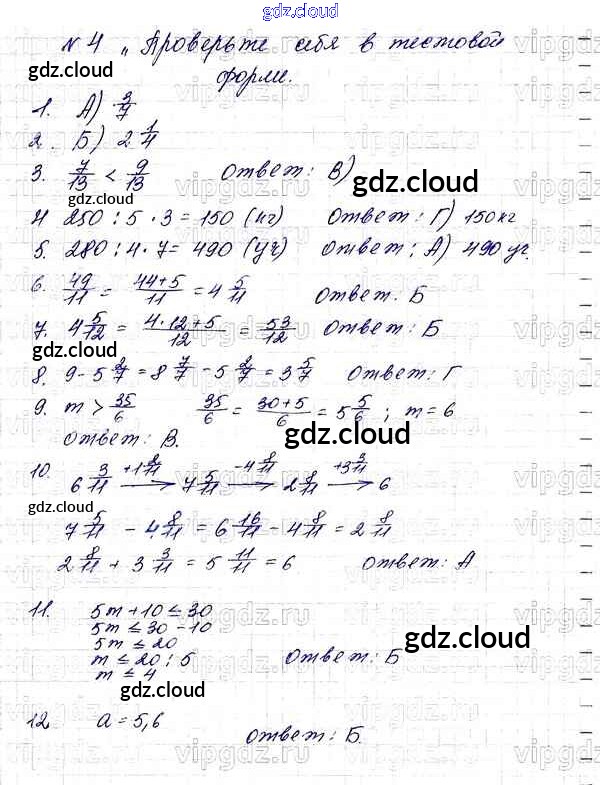 gdz.cloud
№ 4 „Проверьте себя в тестовой
gdz.cloud
форме.
1. А) 3/7
gdz.cloud
2. Б) 2 1/4
3. 7/13 < 9/13 ответ: В)
gdz.cloud
4 250 : 5 · 3 = 150 (кг) ответ: Г) 150 кг
5. 280 : 4 · 7 = 490 (уч) ответ: А) 490 уч.
6. 49/11 = 44+5/11 = 4 5/11 ответ. Б
7. 4 5/12 = 4·12+5/12 = 53/12 ответ: Б
gdz.cloud
8. 9 - 5 2/7 = 8 7/7 - 5 2/7 = 3 5/7 ответ: Г
9. m > 35/6 35/6 = 30+5/6 = 5 5/6 ; m = 6
ответ: В.
gdz.cloud
10. 6 3/11 +1 2/11 → 7 5/11 -4 8/11 → 2 8/11 +3 3/11 → 6
gdz.cloud
7 5/11 - 4 8/11 = 6 16/11 - 4 8/11 = 2 8/11
2 8/11 + 3 3/11 = 5 11/11 = 6 ответ: А
11. 5m + 10 ≤ 30
5m ≤ 30 - 10
5m ≤ 20
gdz.cloud
m ≤ 20 : 5 ответ: Б
m ≤ 4
gdz.cloud
12. a = 5,6
ответ: Б.